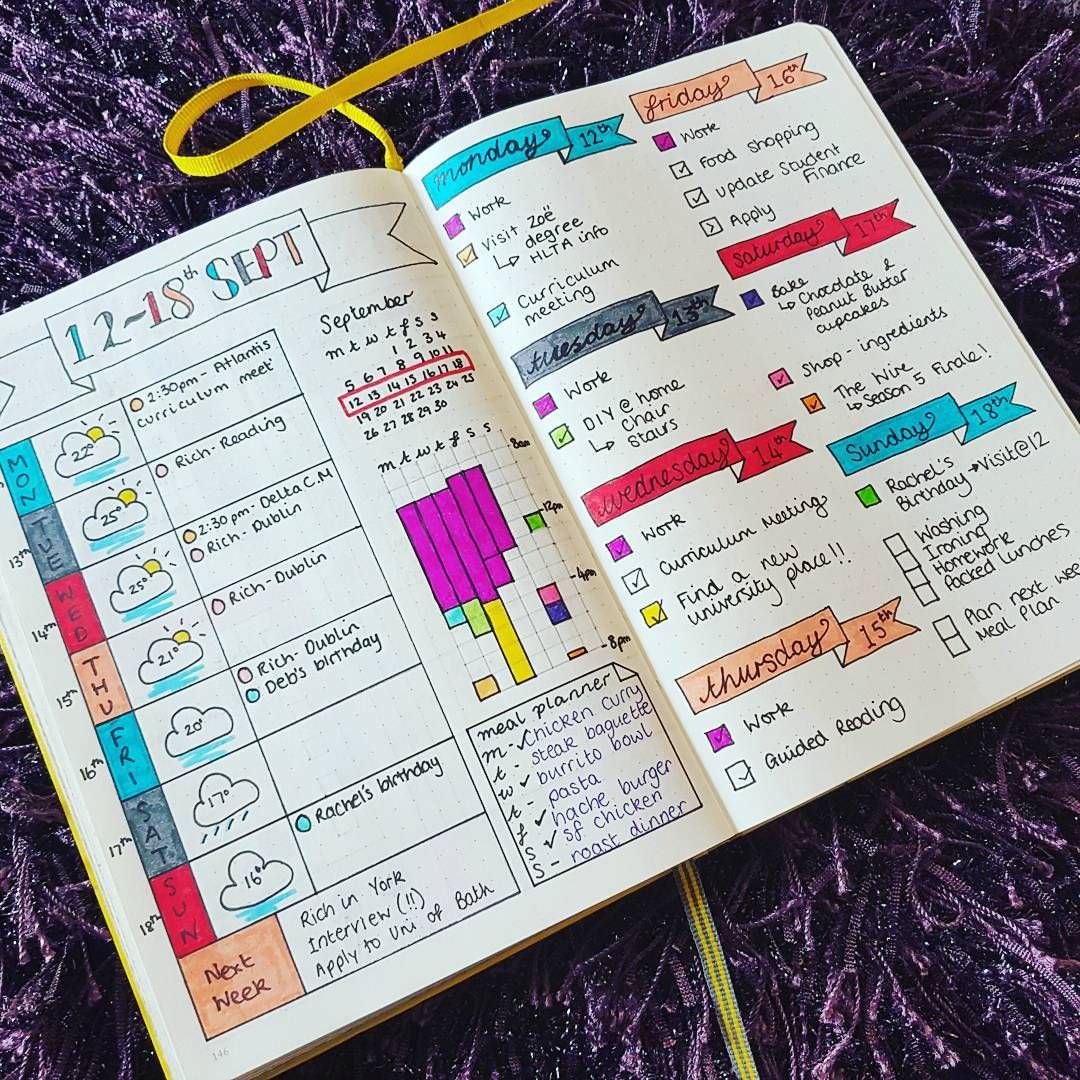 12-18th SEPT
MON
TUE
WED
THU
FRI
SAT
SUN
13th
14th
15th
16th
17th
18th
22°
25°
25°
21°
20°
17°
16°
2:30pm - Atlantis
curriculum meet
Rich - Reading
2:30pm - Delta C.M
Rich - Dublin
Rich - Dublin
Rich - Dublin
Deb's birthday
Rachel's birthday
Next
Week
Rich in York
Interview (!!)
Apply to Uni of Bath
146
September
m t w t f s s
1 2 3 4
5 6 7 8 9 10 11
12 13 14 15 16 17 18
19 20 21 22 23 24 25
26 27 28 29 30
m t w t f s s
8am
12pm
4pm
8pm
meal planner
m - chicken curry
t - steak baguette
w burrito bowl
t - pasta
f hache burger
s sf chicken
s - roast dinner
monday 12th
Work
Visit Zoë
degree
HLTA info
Curriculum
meeting
tuesday 13th
Work
DIY @ home
Chair
Stairs
wednesday 14th
Work
Curriculum meeting
Find a new
university place!!
thursday 15th
Work
Guided Reading
friday 16th
Work
Food Shopping
update Student
Finance
Apply
saturday 17th
Bake
Chocolate &
Peanut Butter
cupcakes
Shop - ingredients
The Wire
Season 5 Finale!
Sunday 18th
Rachel's
Birthday → Visit @ 12
Washing
Ironing
Homework
Packed lunches
Plan next wee
Meal Plan